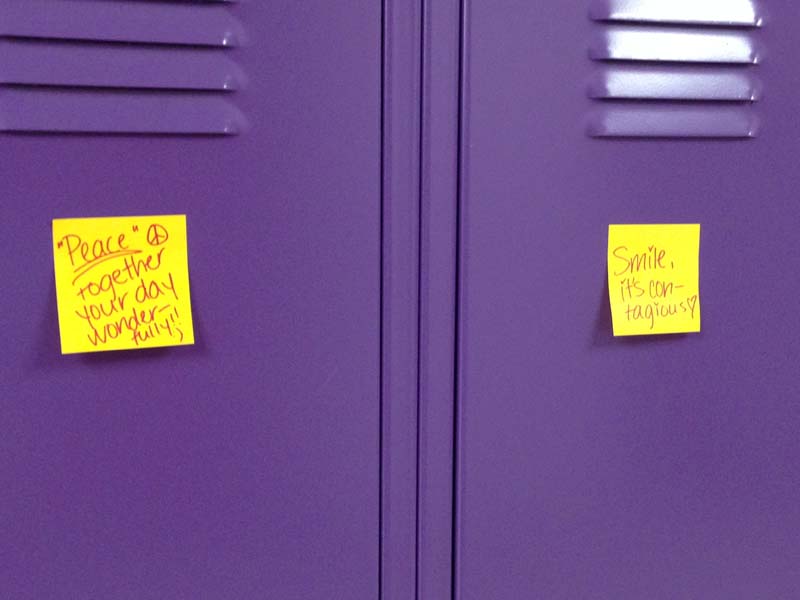 "Peace" ☮
together
your day
wonder-
fully!!
Smile,
it's con-
tagious♡